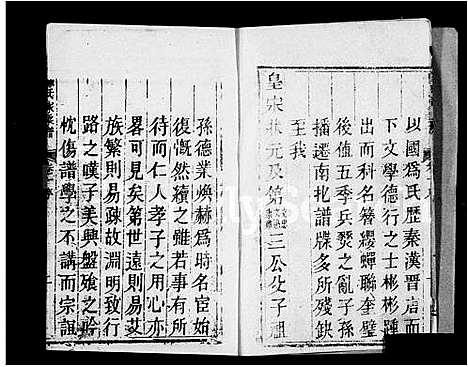 以國爲氏歷秦漢晋唐而
下文學德行之士彬彬踵
出而科名簪纓蟬聯奎璧
後值五季兵燹之亂子孫
播遷南北譜牒多所殘缺
至我
皇宋狀元及第三公父子祖
孫德業煥赫爲時名宦始
復慨然續之雖若事有所
待而仁人孝子之用心亦
畧可見矣第世遠則易䒳
族繁則易疎故淵明致行
路之嘆子美興盤飧之吟
忱傷譜學之不講而宗誼